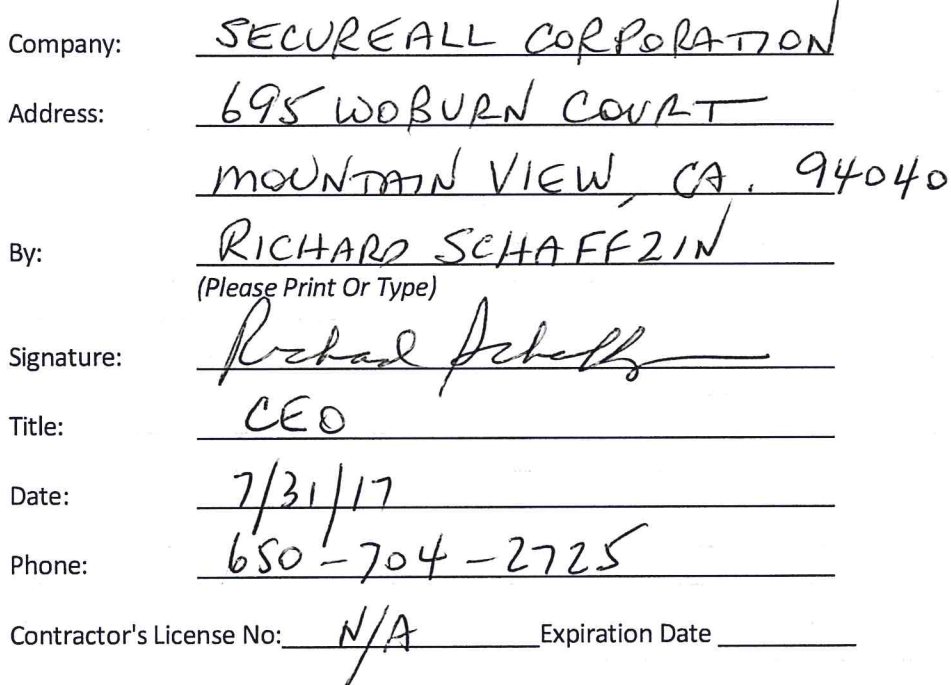 Company: SECUREALL CORPORATION
Address: 695 WOBURN COURT
MOUNTAIN VIEW, CA. 94040
By: RICHARD SCHAFFZIN
(Please Print Or Type)
Signature: Richard Schaffzin
Title: CEO
Date: 7/31/17
Phone: 650-704-2725
Contractor's License No: N/A Expiration Date